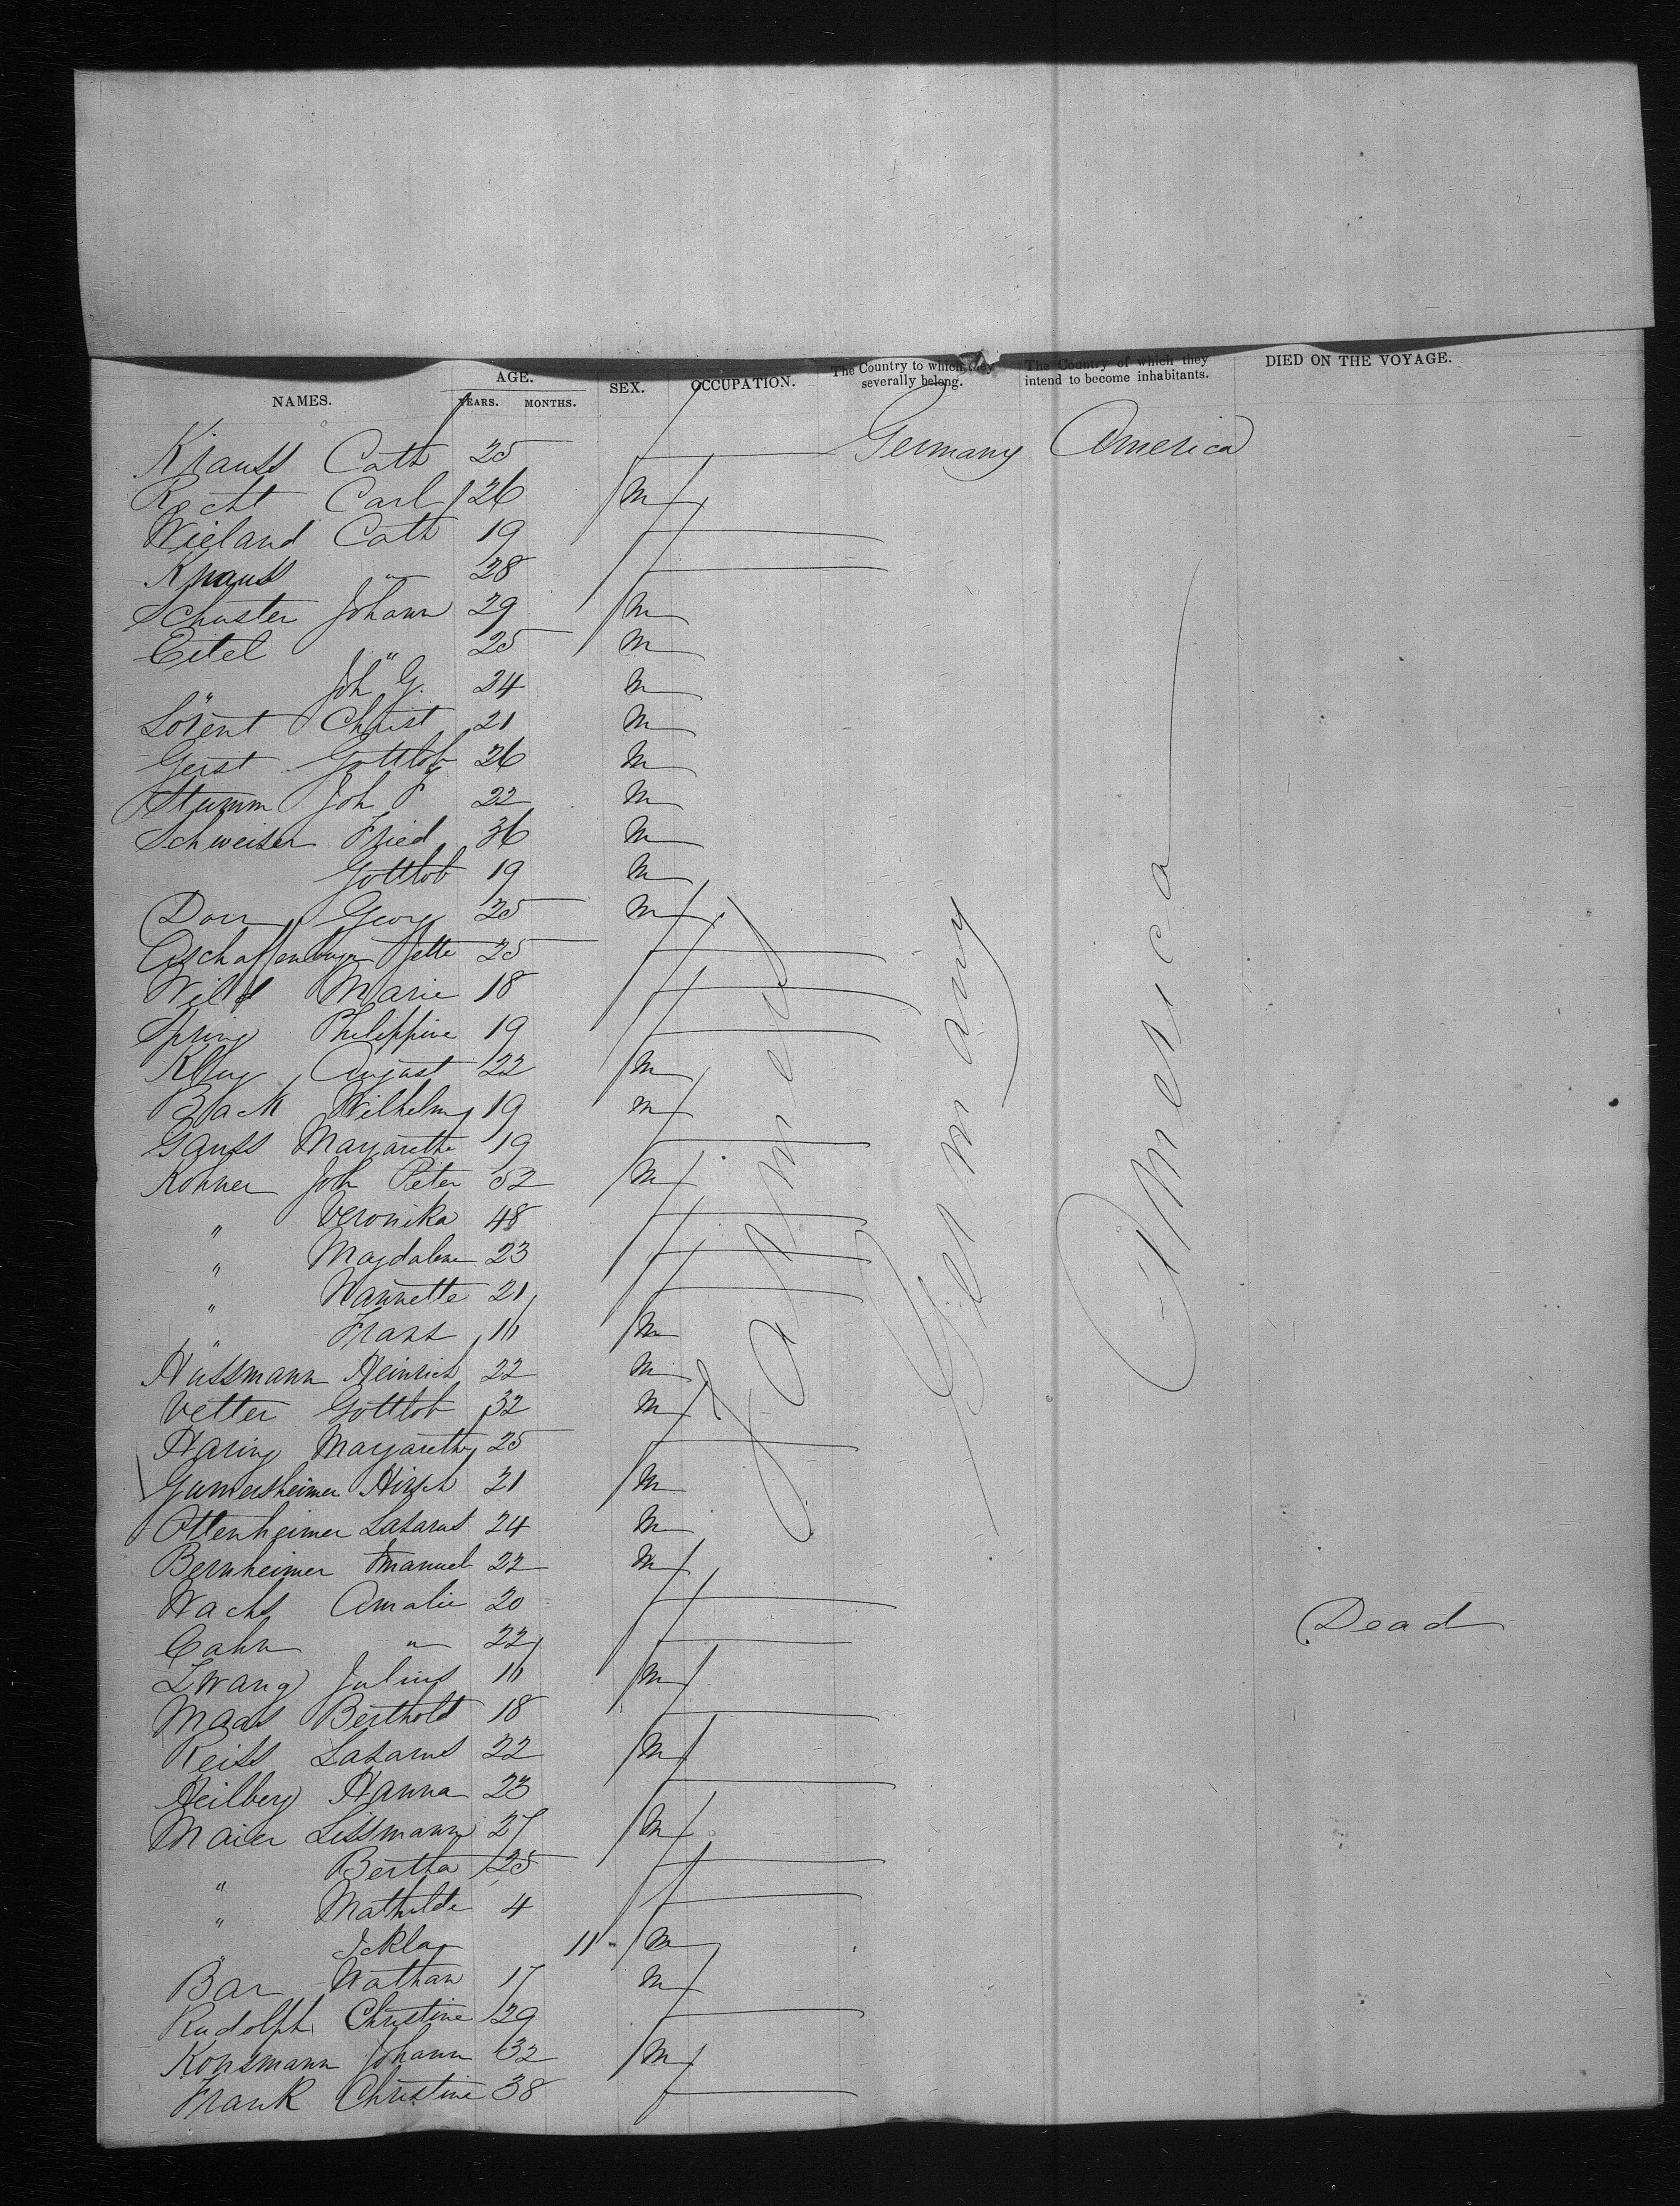 NAMES. AGE. YEARS. MONTHS. SEX. OCCUPATION. The Country to which they severally belong. The Country of which they intend to become inhabitants. DIED ON THE VOYAGE.
Krauss Cath 25 f Germany America
Recht Carl 26 m
Wieland Cath 19 f
Knauss " 28 f
Schuster Johann 29 m
Eitel " 25 m
" Joh G. 24 m
Lorent Christ 21 m
Geist Gottlob 26 m
Stumm Joh F 22 m
Schweiser Fried 36 m
Gottlob 19 m
Dorr Georg 25 m
Aschaffenburger Jette 25 f
Wild Marie 18 f
Spring Philippine 19 f
Klug August 22 m
Back Wilhelm 19 m
Gauss Margarethe 19 f
Kohner Joh Peter 52 m
" Veronika 48 f
" Magdalene 23 f
" Nannette 21 f
" Franz 16 m
Hussmann Heinrich 22 m
Vetter Gottlob 32 m
Haring Margarethe 25 f
Gumersheimer Hirsch 21 m
Ottenheimer Lazarus 24 m
Bernheimer Emanuel 22 m
Wachs Amalie 20 f Dead
Cahn " 22 f
Zwang Julius 16 m
Maas Berthold 18 f
Reiss Lazarus 22 m
Heilberg Hanna 23 f
Maier Lissmann 27 m
" Bertha 25 f
" Mathilde 4 f
" 11 m
Bar Nathan 17 m
Rudolph Christine 29 f
Konzmann Johann 32 m
Frank Christine 38 f
Farmers
Germany
America